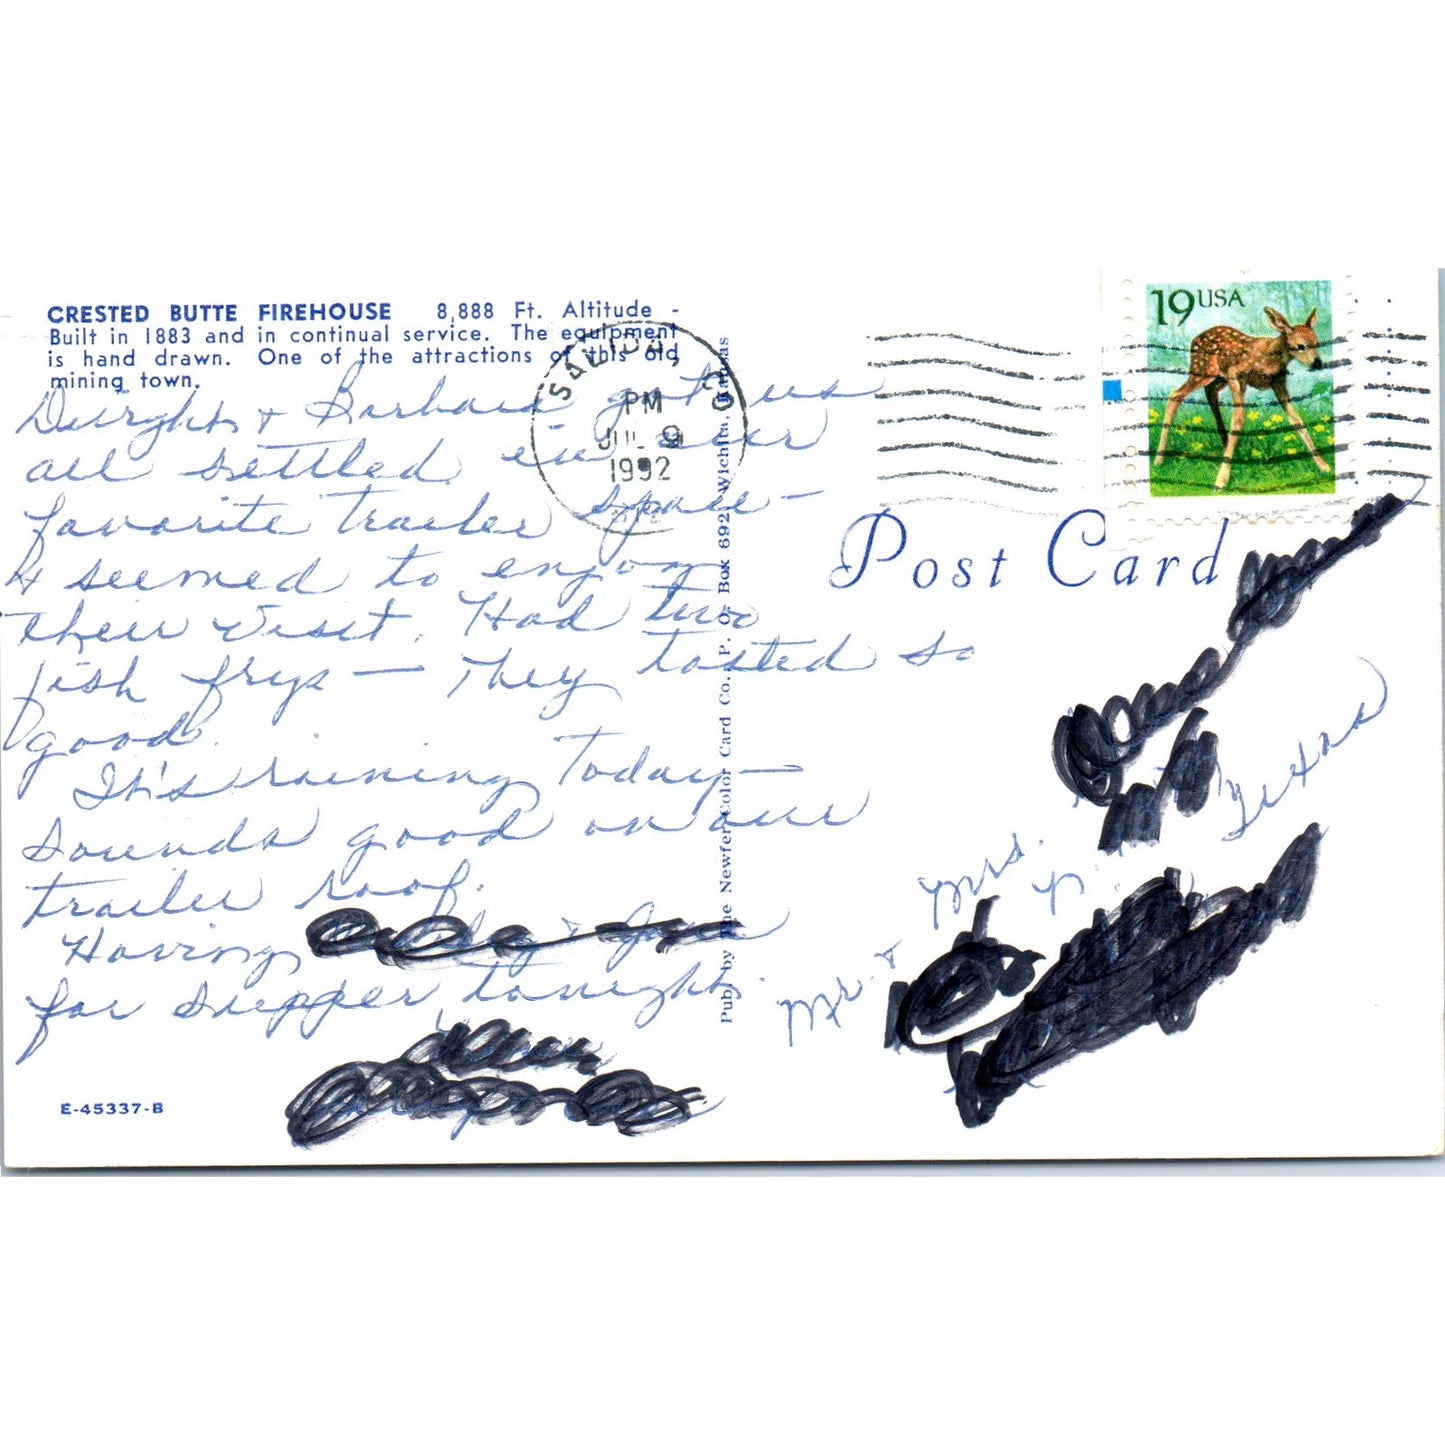 CRESTED BUTTE FIREHOUSE 8,888 Ft. Altitude -
Built in 1883 and in continual service. The equipment
is hand drawn. One of the attractions of this old
mining town.
Dwight & Barbara got us
all settled in our
favorite trailer space -
& seemed to enjoy
their visit. Had two
fish frys - They tasted so
good.
It's raining Today -
sounds good on our
trailer roof.
Having & 
for supper tonight.
E-45337-B
Pub. by The Newfer Color Card Co., P. O. Box 692, Wichita, Kansas
SALIDA, CO
PM
JUL 9
1992
19 USA
Post Card
Mr. & Mrs.
Texas